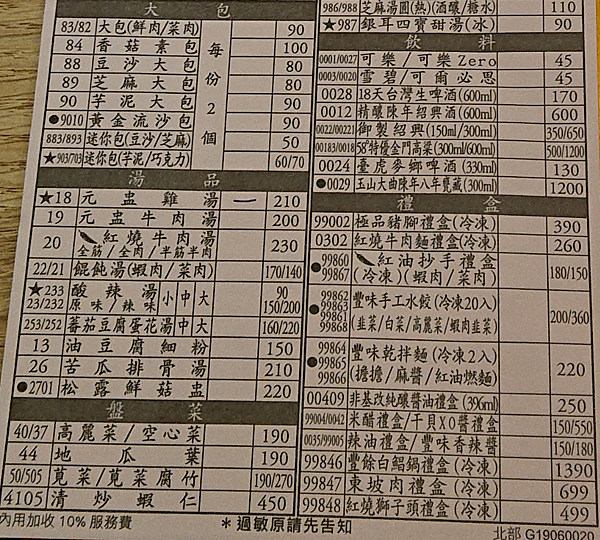 大包
83/82 大包(鮮肉/菜肉) 90
84 香菇素包 100
88 豆沙大包 80
89 芝麻大包 80
90 芋泥大包 90
●9010 黃金流沙包 90
883/893 迷你包(豆沙/芝麻) 50
★903/703 迷你包(芋泥/巧克力) 60/70
每份2個
湯品
★18 元盅雞湯 210
19 元盅牛肉湯 200
20 紅燒牛肉湯 230
全筋/全肉/半筋半肉
22/21 餛飩湯(蝦肉/菜肉) 170/140
★233 酸辣湯 小中大 90
23/232 原味/辣味 150/200
253/252 蕃茄豆腐蛋花湯 中大 160/220
13 油豆腐細粉 150
26 苦瓜排骨湯 210
●2701 松露鮮菇盅 220
盤菜
40/37 高麗菜/空心菜 190
44 地瓜葉 190
50/505 莧菜/莧菜腐竹 190/270
4105 清炒蝦仁 450
內用加收10%服務費
986/988 芝麻湯圓(熱)(酒釀/糖水) 110
★987 銀耳四寶甜湯(冰) 90
飲料
0001/0027 可樂/可樂Zero 45
0003/0020 雪碧/可爾必思 45
0028 18天台灣生啤酒(600ml) 170
0012 精釀陳年紹興酒(600ml) 600
0022/00221 御製紹興(150ml/300ml) 350/650
00183/0018 58°特優金門高粱(300ml/600ml) 500/1200
0024 臺虎麥鄉啤酒(330ml) 130
●0029 玉山大曲陳年八年甕藏(300ml) 1200
禮盒
99002 極品豬腳禮盒(冷凍) 390
0302 紅燒牛肉麵禮盒(冷凍) 260
●99860 紅油抄手禮盒 180/150
99867 (冷凍)(蝦肉/菜肉)
●99862 豐味手工水餃(冷凍20入) 200/360
99863
99861
99868 (韭菜/白菜/高麗菜/蝦肉韭菜)
●99864 豐味乾拌麵(冷凍2入) 220
99865
99866 (擔擔/麻醬/紅油燃麵)
00409 非基改純釀醬油禮盒(396ml) 250
99004/0042 米醋禮盒/干貝XO醬禮盒 150/550
0035/99005 辣油禮盒/豐味香辣醬 150/180
99846 豐餘白鯧鍋禮盒(冷凍) 1390
99847 東坡肉禮盒(冷凍) 699
99848 紅燒獅子頭禮盒(冷凍) 499
*過敏原請先告知
北部 G19060020